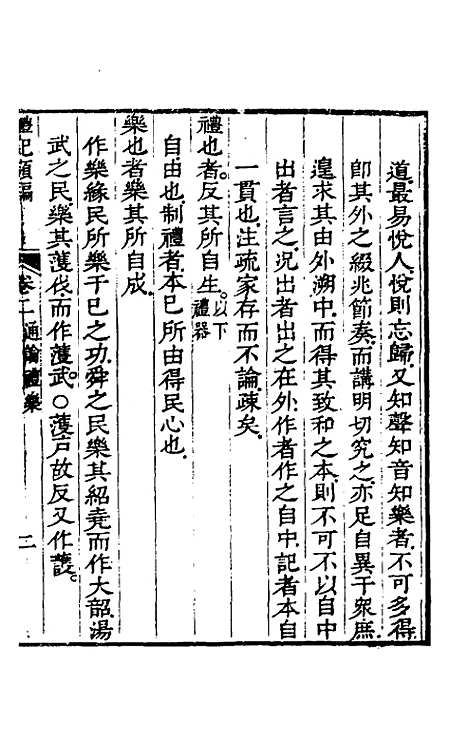 道最易悅人悅則忘歸又知聲知音知樂者不可多得
卽其外之綴兆節奏而講明切究之亦足自異于衆庶
遑求其由外溯中而得其致和之本則不可不以自中
出者言之況出者出之在外作者作之自中記者本自
一貫也注疏家存而不論疎矣
禮也者反其所自生以下禮器
自由也制禮者本已所由得民心也
樂也者樂其所自成
作樂緣民所樂于已之功舜之民樂其紹堯而作大韶湯
武之民樂其濩伐而作濩武○濩戸故反又作頀
禮記類編 卷二通論禮樂 二